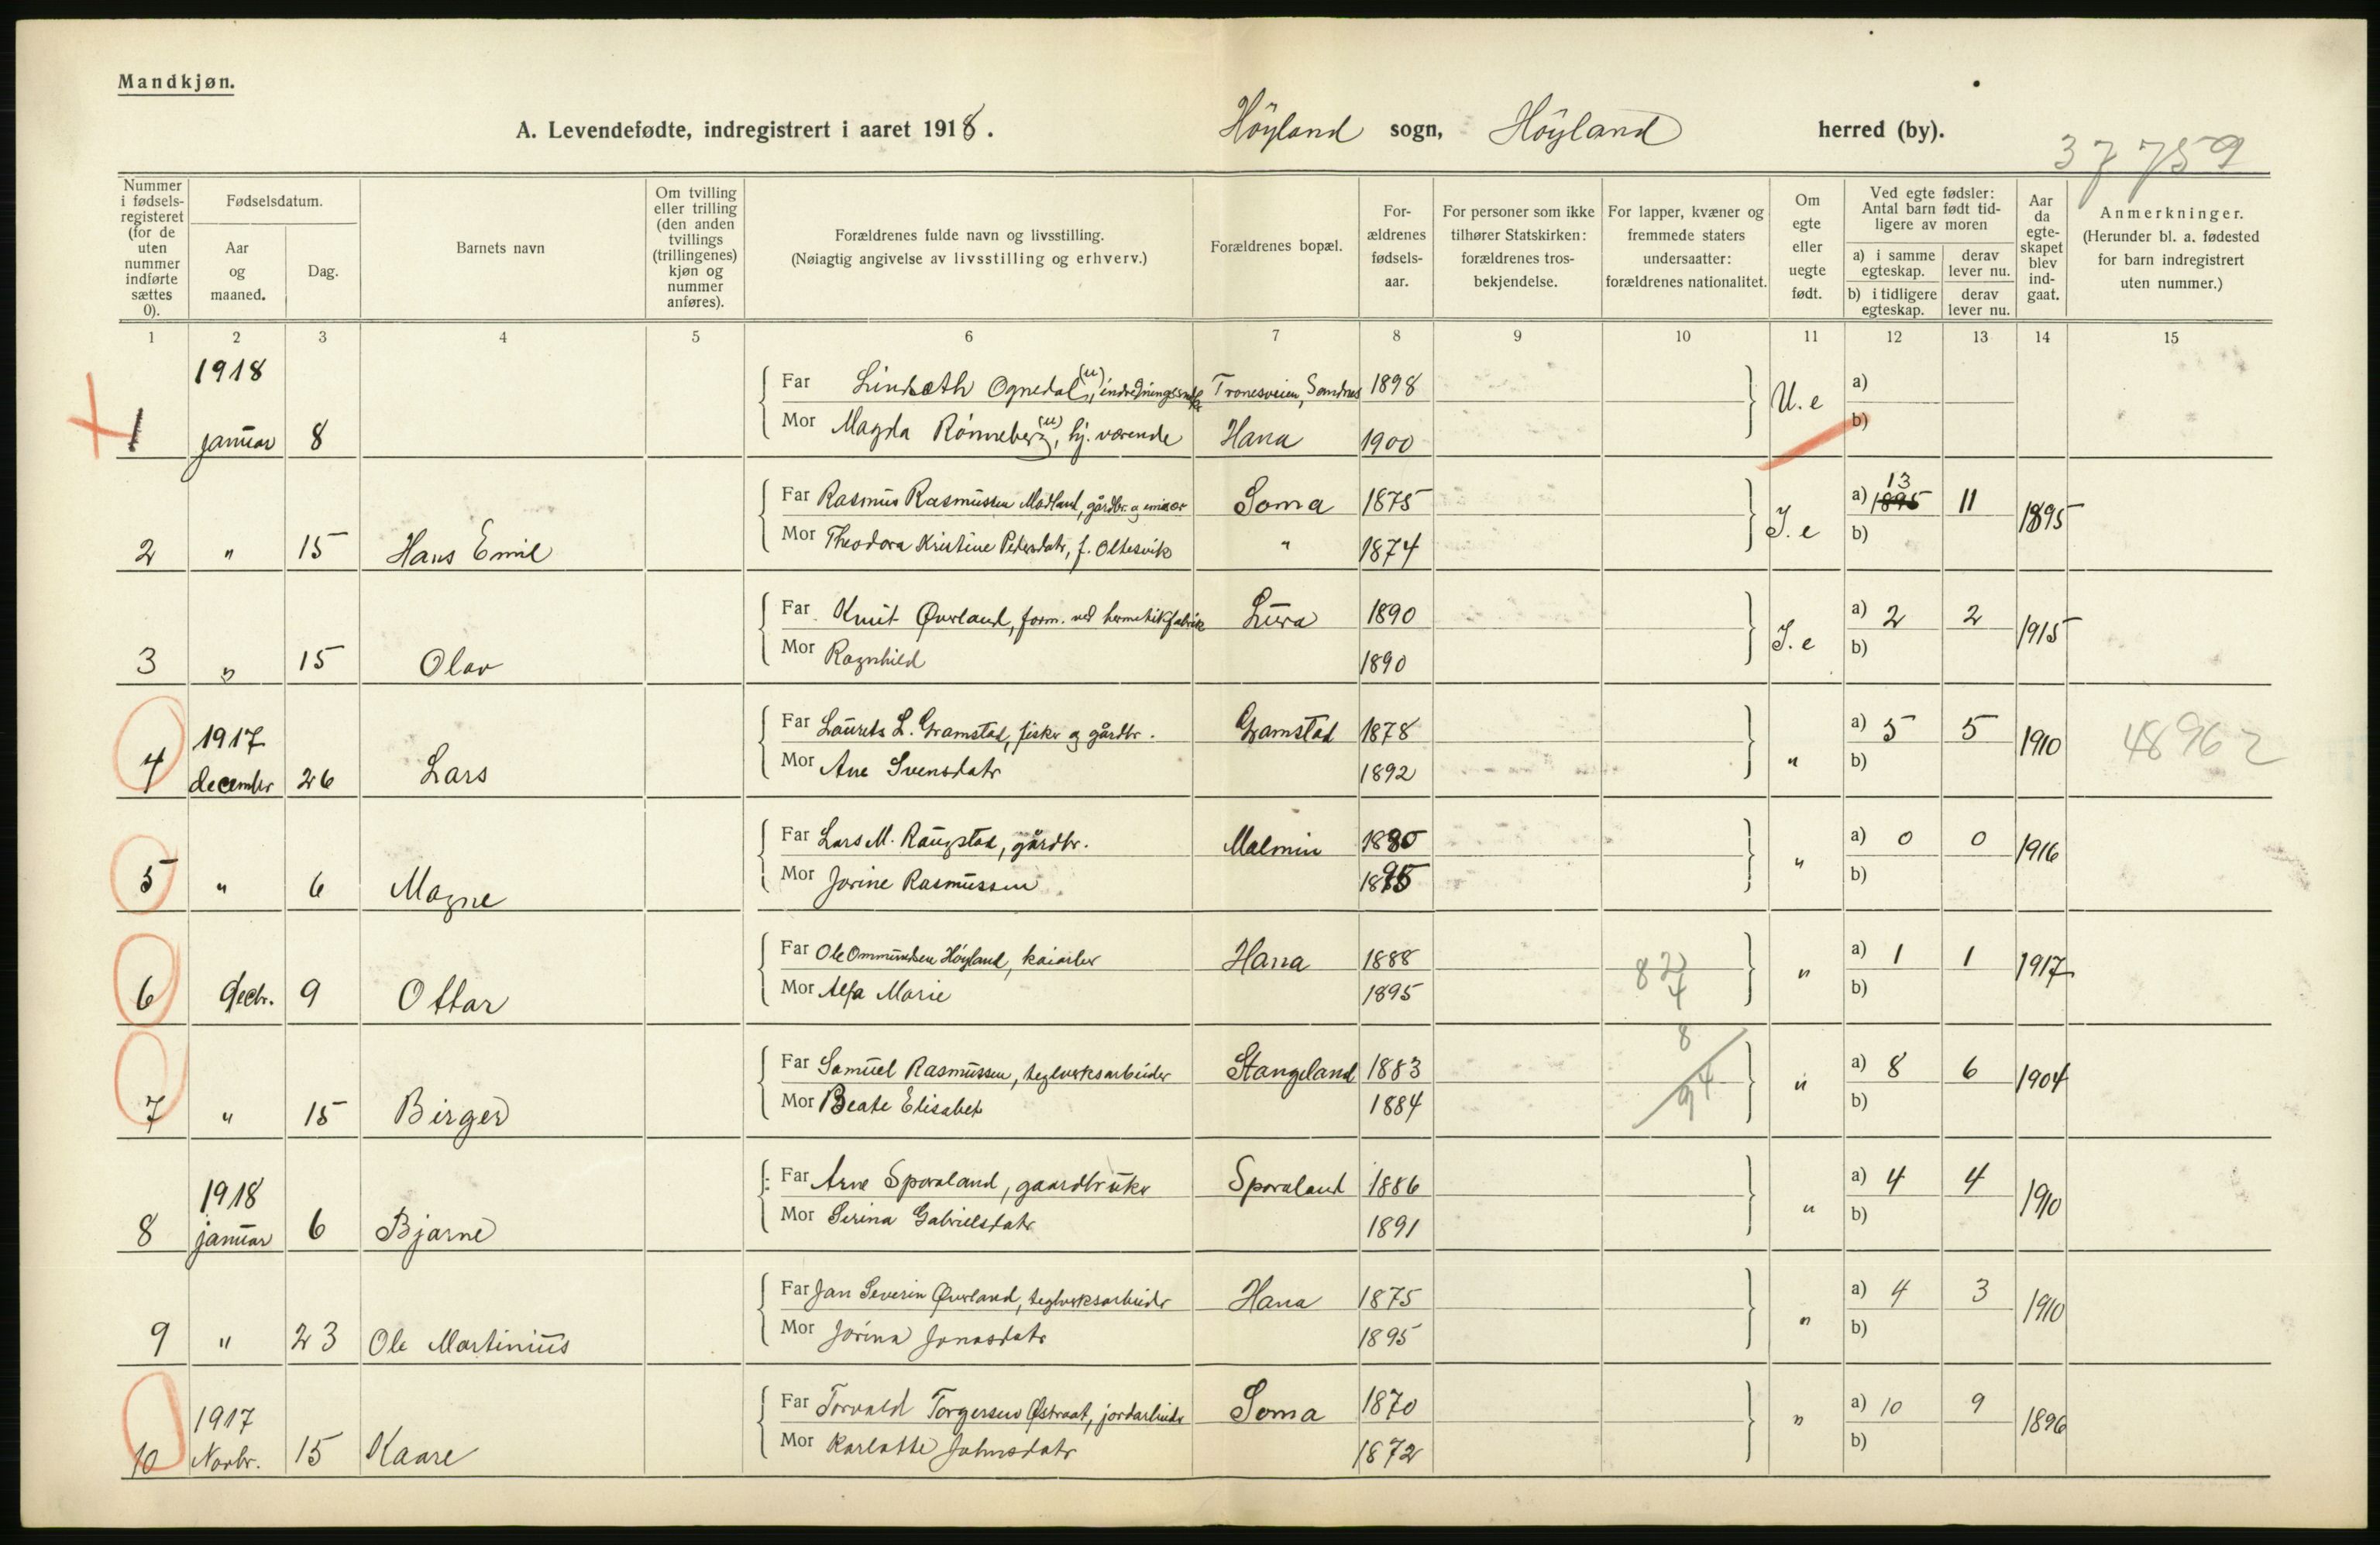 Mandkjøn.
A. Levendefødte, indregistrert i aaret 1918. Höyland sogn, Höyland herred (by).
37759
Nummer i fødsels-registeret (for de uten nummer indførte sættes 0).
Fødselsdatum.
Aar og maaned.
Dag.
Barnets navn
Om tvilling eller trilling (den anden tvillings (trillingenes) kjøn og nummer anføres).
Forældrenes fulde navn og livsstilling.
(Nøiagtig angivelse av livsstilling og erhverv.)
Forældrenes bopæl.
For-ældrenes fødsels-aar.
For personer som ikke tilhører Statskirken: forældrenes tros-bekjendelse.
For lapper, kvæner og fremmede staters undersaatter: forældrenes nationalitet.
Om egte eller uegte født.
Ved egte fødsler: Antal barn født tid-ligere av moren
a) i samme egteskap.
derav lever nu.
b) i tidligere egteskap.
derav lever nu.
Aar da egte-skapet blev ind-gaat.
Anmerkninger.
(Herunder bl. a. fødested for barn indregistrert uten nummer.)
1 2 3 4 5 6 7 8 9 10 11 12 13 14 15
1918
Far Ognedal (u), Tronesveien, Sandnes 1898 a)
1 januar 8 Mor Magda Rönneberg (u), hj. værende Hana 1900 U. e b)
13
Far Rasmus Rasmussen Madland, gårdbr. og Soma 1875 a) 1895 11 1895
2 " 15 Hans Emil Mor Theodora Kristine Pedersdatr, f. Oltesvik " 1874 I. e b)
Far Knut Øverland, form. ved hermetikfabrik Lura 1890 a) 2 2 1915
3 " 15 Olav Mor Ragnhild 1890 I. e b)
1917
Far Laurits L. Gramstad, fisker og gårdbr. Gramstad 1878 a) 5 5 1910 48962
4 december 26 Lars Mor Ane Svensdatr 1892 " b)
Far Lars M. Raugstad, gårdbr. Malmin 1880 a) 0 0 1916
5 " 6 Magne Mor Jorine Rasmussen 1895 " b)
Far Ole Ommundsen Höyland, kaiarber Hana 1888 82 a) 1 1 1917
4
6 decbr. 9 Ottar Mor Alfa Marie 1895 " b)
8
Far Samuel Rasmussen, teglverksarbeider Stangeland 1883 a) 8 6 1904
94
7 " 15 Birger Mor Beate Elisabet 1884 " b)
1918
Far Arne Sporaland, gaardbruker Sporaland 1886 a) 4 4 1910
8 januar 6 Bjarne Mor Serina Gabrielsdatr 1891 " b)
Far Jan Severin Øverland, teglverksarbeider Hana 1875 a) 4 3 1910
9 " 23 Ole Martinius Mor Jorina Jonasdatr 1895 " b)
1917
Far Torvald Torgersen Østraat, jordarbeider Soma 1870 a) 10 9 1896
10 Novbr. 15 Kaare Mor Karlotte Johnsdatr 1872 " b)